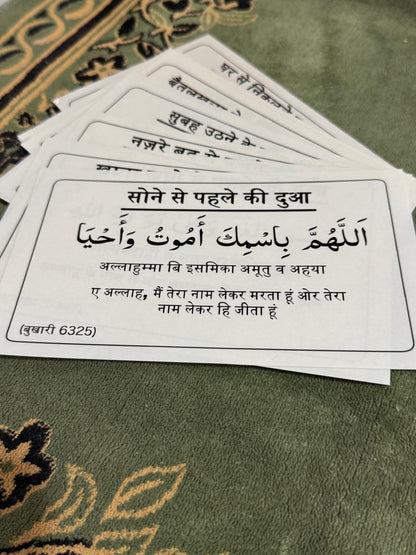 घर से निकलने
सुबह उठने के
नज़रे बद से
सोने से पहले की दुआ
اَللَّهُمَّ بِاسْمِكَ أَمُوتُ وَأَحْيَا
अल्लाहुम्मा बि इसमिका अमूतु व अहया
ए अल्लाह, मैं तेरा नाम लेकर मरता हूं ओर तेरा
नाम लेकर हि जीता हूं
(बुखारी 6325)